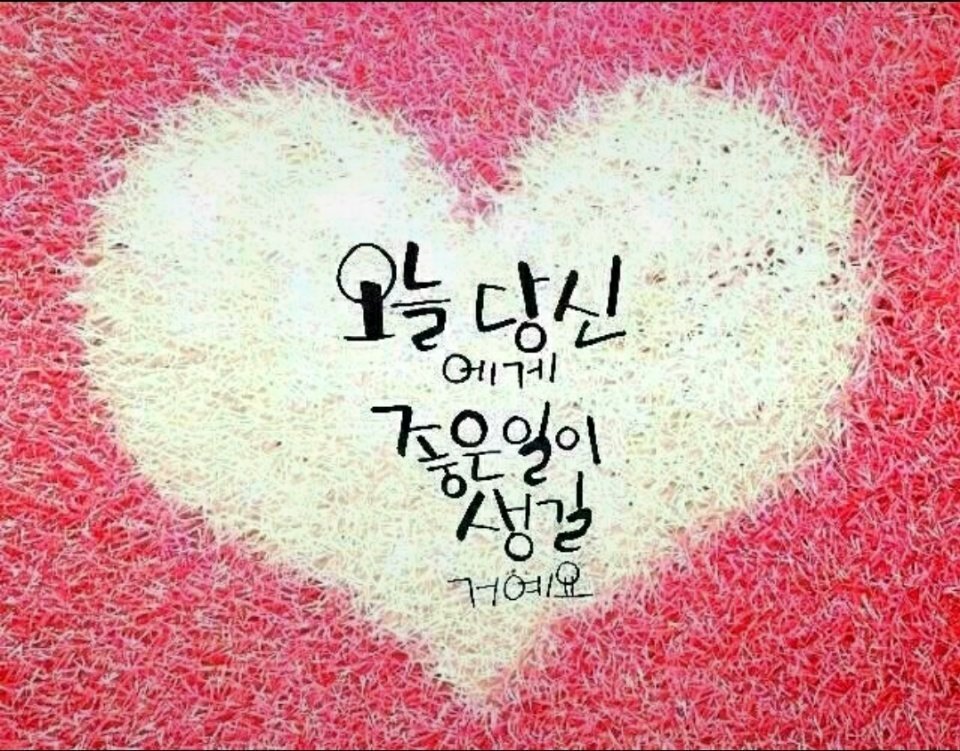 오늘 당신
에게
좋은일이
생길
거예요